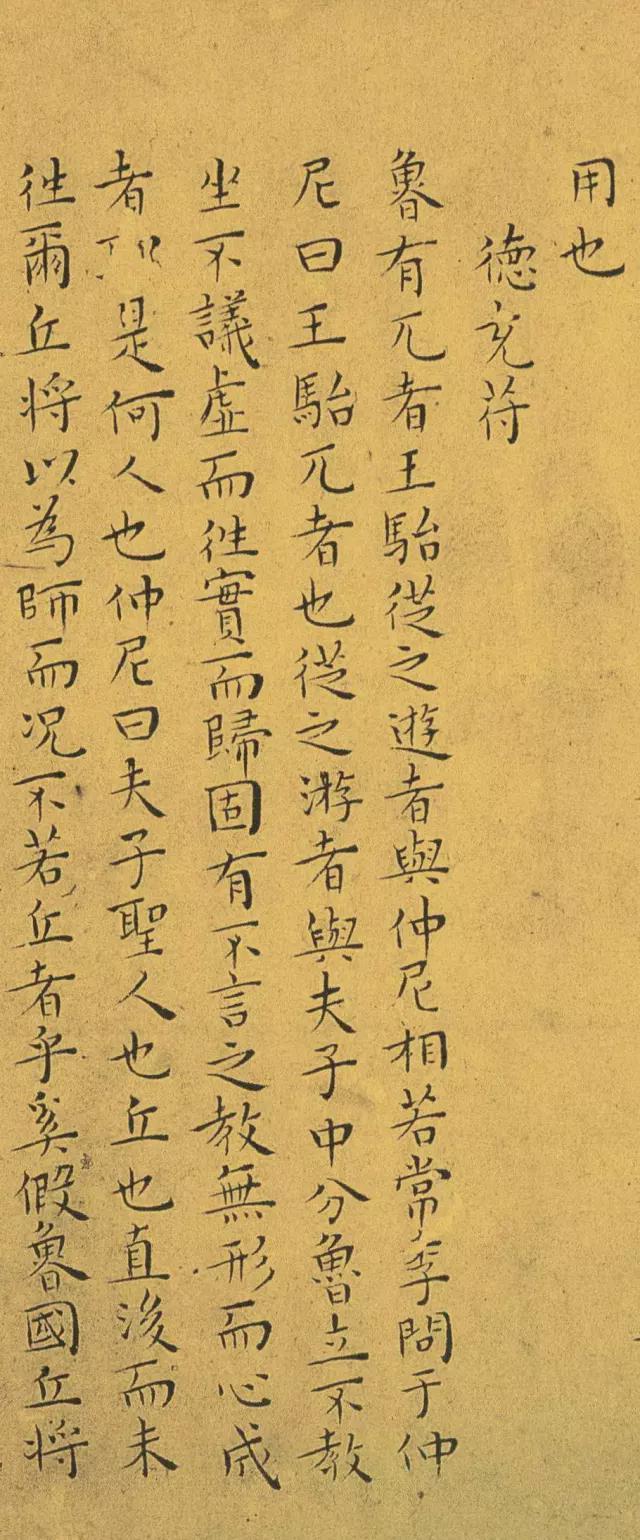 用也
德充符
魯有兀者王駘從之遊者與仲尼相若常季問于仲
尼曰王駘兀者也從之游者與夫子中分魯立不教
坐不議虛而往實而歸固有不言之教無形而心成
者 是何人也仲尼曰夫子聖人也丘也直後而未
往爾丘將以為師而況不若丘者乎奚假魯國丘將